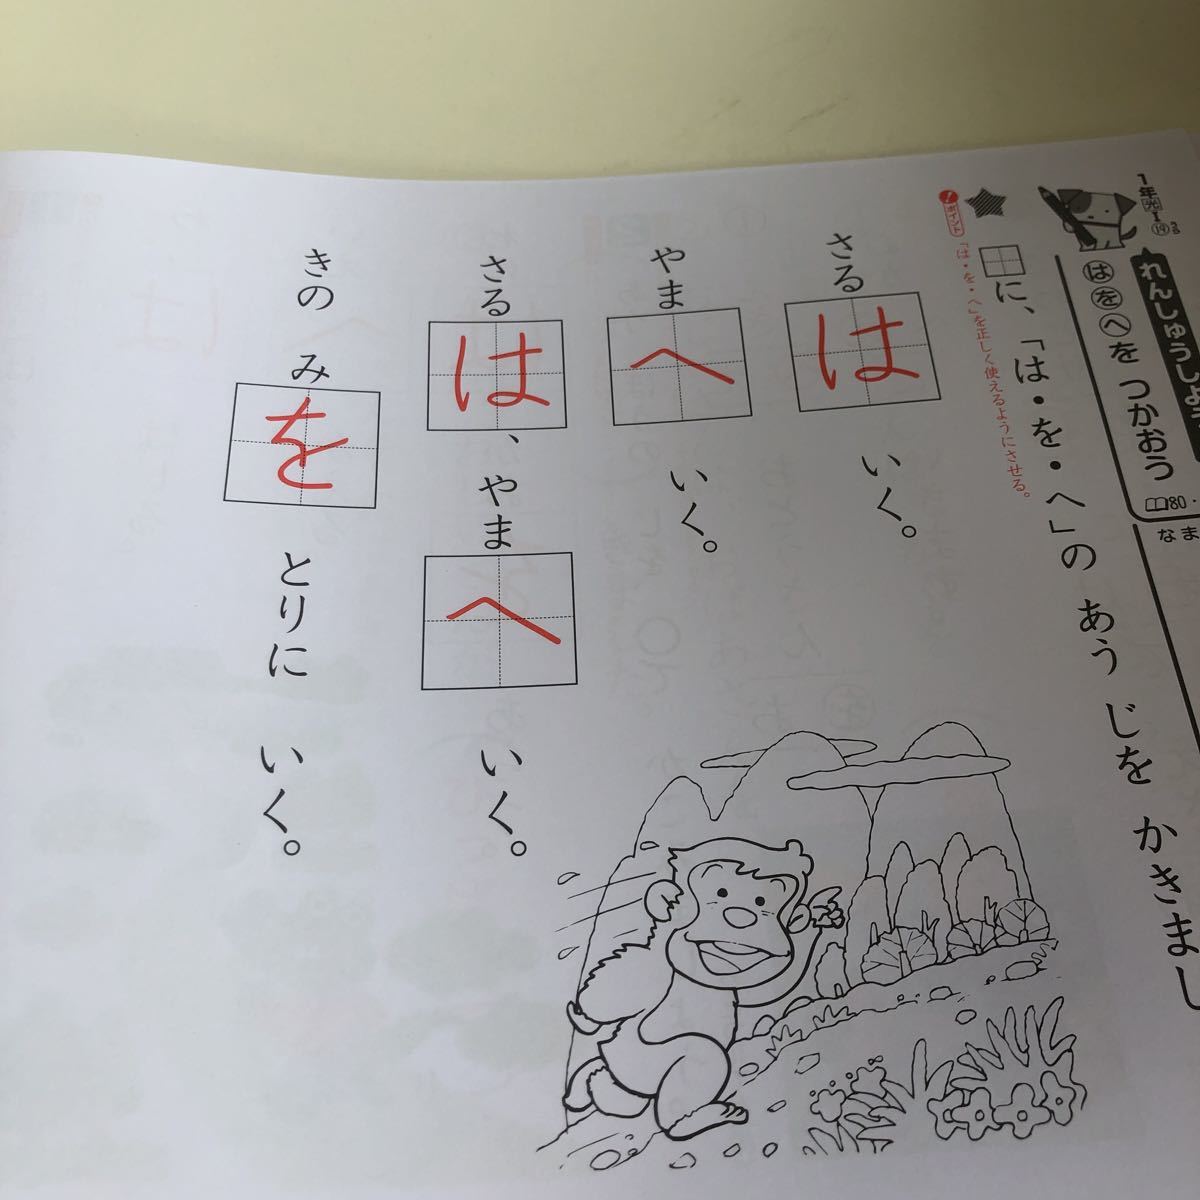 1年光I⑲
れんしゅうしよ
はをへを つかおう
80・
なま
に、「は・を・へ」の あう じを かきまし
ポイント 「は・を・へ」を正しく使えるようにさせる。
さるは いく。
やまへ いく。
さるは、やまへ いく。
きの みを とりに いく。